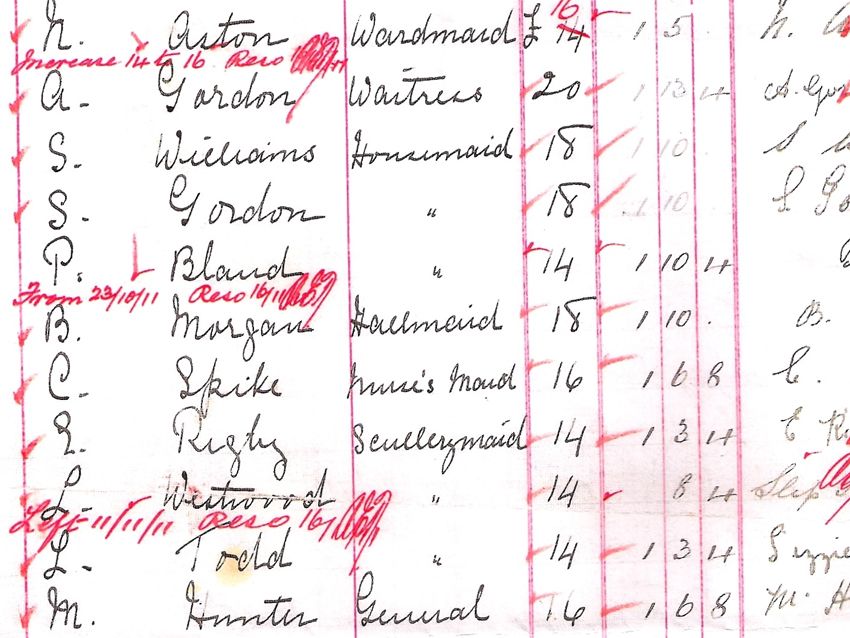 N. Aston Wardmaid £ 14 16 1 5
Increase 14 to 16 Reso
A. Gordon Waitress 20 1 13 4 A. Gor
S. Williams Housemaid 18 1 10 S
S. Gordon " 18 1 10 S Go
P. Bland " 14 1 10 4
From 23/10/11 Reso 16/11
B. Morgan Hallmaid 18 1 10 . B.
C. Spike Nurse's Maid 16 1 6 8 C.
E. Rigby Scullerymaid 14 1 3 4 E Ri
L. Westwood " 14 8 4 Slip
Left 11/11/11 Reso 16/
L. Todd " 14 1 3 4 Lizzie
M. Hunter General 16 1 6 8 M. H